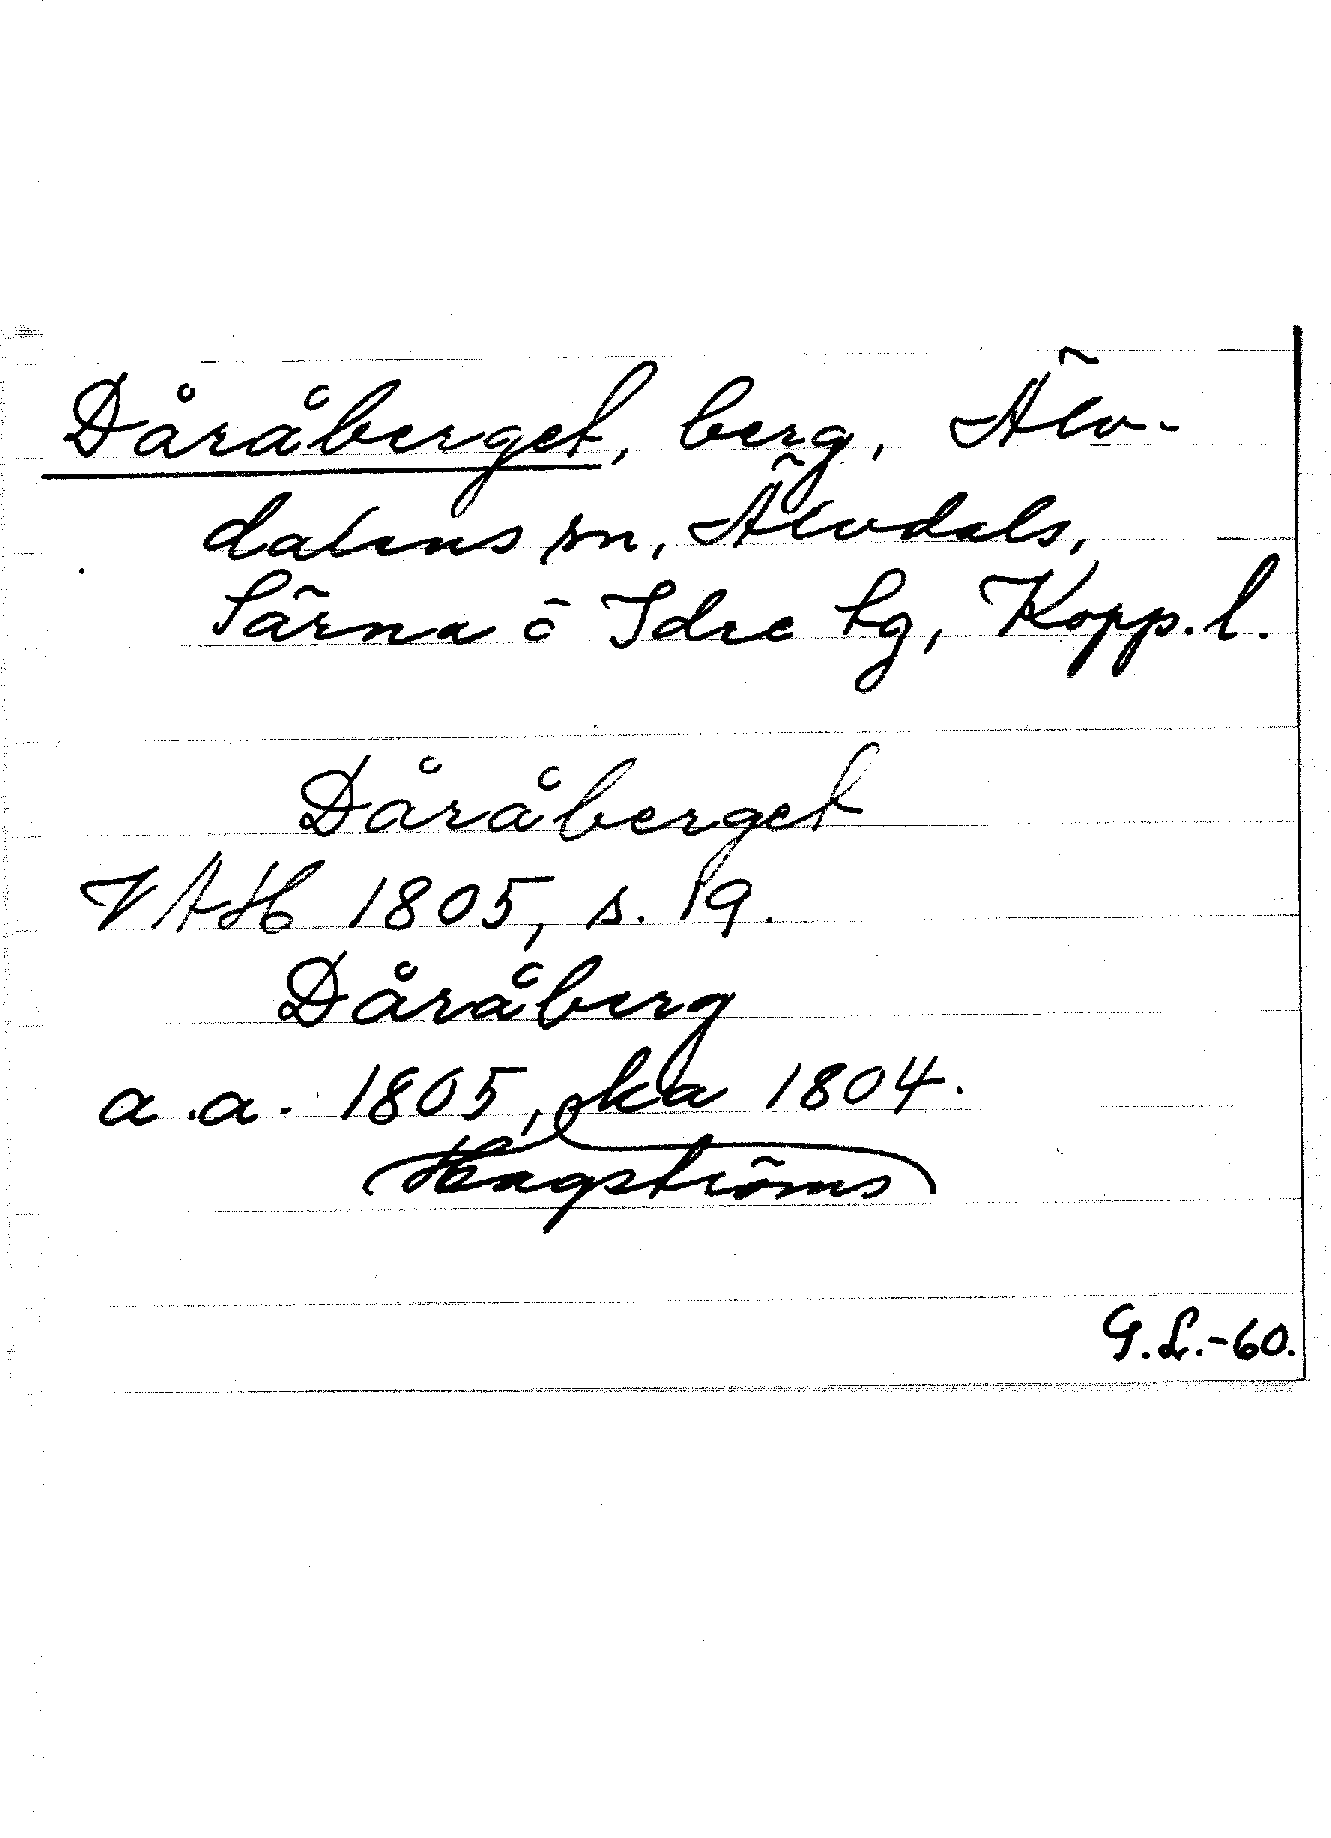 Dåråberget, berg, Älv-
dalens sn, Älvdals,
Särna o Idre tg, Kopp. l.
Dåråberget
VAH 1805, s. 19.
Dåråberg
a.a. 1805, ka 1804.
Hagströms
G.L.-60.